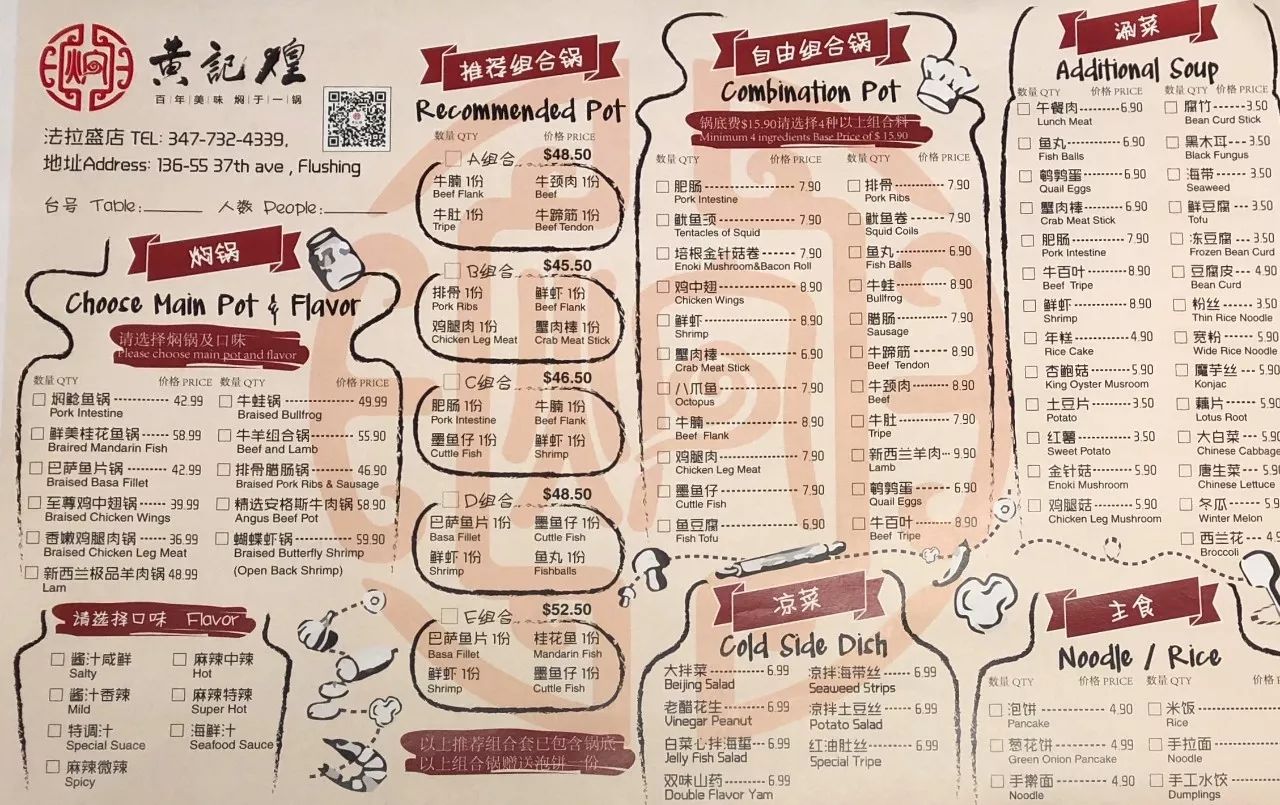 焖
黄記煌
百年美味 焖于一锅
法拉盛店 TEL: 347-732-4339,
地址Address: 136-55 37th ave , Flushing
台号 Table: 人数 People:
焖锅
Choose Main Pot & Flavor
请选择焖锅及口味
Please choose main pot and flavor
数量 QTY 价格 PRICE 数量 QTY 价格 PRICE
焖鲶鱼锅 42.99
Pork Intestine
鲜美桂花鱼锅 58.99
Braired Mandarin Fish
巴萨鱼片锅 42.99
Braised Basa Fillet
至尊鸡中翅锅 39.99
Braised Chicken Wings
香嫩鸡腿肉锅 36.99
Braised Chicken Leg Meat
新西兰极品羊肉锅 48.99
Lam
牛蛙锅 49.99
Braised Bullfrog
牛羊组合锅 55.90
Beef and Lamb
排骨腊肠锅 46.90
Braised Pork Ribs & Sausage
精选安格斯牛肉锅 58.90
Angus Beef Pot
蝴蝶虾锅 59.90
Braised Butterfly Shrimp
(Open Back Shrimp)
请选择口味 Flavor
酱汁咸鲜
Salty
酱汁香辣
Mild
特调汁
Special Suace
麻辣微辣
Spicy
麻辣中辣
Hot
麻辣特辣
Super Hot
海鲜汁
Seafood Sauce
推荐组合锅
Recommended Pot
数量 QTY 价格 PRICE
A组合 $48.50
牛腩 1份 牛颈肉 1份
Beef Flank Beef
牛肚 1份 牛蹄筋 1份
Tripe Beef Tendon
B组合 $45.50
排骨 1份 鲜虾 1份
Pork Ribs Beef Flank
鸡腿肉 1份 蟹肉棒 1份
Chicken Leg Meat Crab Meat Stick
C组合 $46.50
肥肠 1份 牛腩 1份
Pork Intestine Beef Flank
墨鱼仔 1份 鲜虾 1份
Cuttle Fish Shrimp
D组合 $48.50
巴萨鱼片 1份 墨鱼仔 1份
Basa Fillet Cuttle Fish
鲜虾 1份 鱼丸 1份
Shrimp Fishballs
E组合 $52.50
巴萨鱼片 1份 桂花鱼 1份
Basa Fillet Mandarin Fish
鲜虾 1份 墨鱼仔 1份
Shrimp Cuttle Fish
以上推荐组合套已包含锅底
以上组合锅赠送泡饼一份
自由组合锅
Combination Pot
锅底费$15.90请选择4种以上组合料
Minimum 4 ingredients Base Price of $ 15.90
数量 QTY 价格 PRICE 数量 QTY 价格 PRICE
肥肠 7.90
Pork Intestine
鱿鱼须 7.90
Tentacles of Squid
培根金针菇卷 7.90
Enoki Mushroom&Bacon Roll
鸡中翅 8.90
Chicken Wings
鲜虾 8.90
Shrimp
蟹肉棒 6.90
Crab Meat Stick
八爪鱼 7.90
Octopus
牛腩 8.90
Beef Flank
鸡腿肉 7.90
Chicken Leg Meat
墨鱼仔 7.90
Cuttle Fish
鱼豆腐 6.90
Fish Tofu
排骨 7.90
Pork Ribs
鱿鱼卷 7.90
Squid Coils
鱼丸 6.90
Fish Balls
牛蛙 8.90
Bullfrog
腊肠 7.90
Sausage
牛蹄筋 8.90
Beef Tendon
牛颈肉 8.90
Beef
牛肚 7.90
Tripe
新西兰羊肉 9.90
Lamb
鹌鹑蛋 6.90
Quail Eggs
牛百叶 8.90
Beef Tripe
凉菜
Cold Side Dich
大拌菜 6.99
Beijing Salad
老醋花生 6.99
Vinegar Peanut
白菜心拌海蜇 6.99
Jelly Fish Salad
双味山药 6.99
Double Flavor Yam
凉拌海带丝 6.99
Seaweed Strips
凉拌土豆丝 6.99
Potato Salad
红油肚丝 6.99
Special Tripe
涮菜
Additional Soup
数量 QTY 价格 PRICE 数量 QTY 价格 PRICE
午餐肉 6.90
Lunch Meat
鱼丸 6.90
Fish Balls
鹌鹑蛋 6.90
Quail Eggs
蟹肉棒 6.90
Crab Meat Stick
肥肠 7.90
Pork Intestine
牛百叶 8.90
Beef Tripe
鲜虾 8.90
Shrimp
年糕 4.90
Rice Cake
杏鲍菇 5.90
King Oyster Musroom
土豆片 3.50
Potato
红薯 3.50
Sweet Potato
金针菇 5.90
Enoki Mushroom
鸡腿菇 5.90
Chicken Leg Mushroom
腐竹 3.50
Bean Curd Stick
黑木耳 3.50
Black Fungus
海带 3.50
Seaweed
鲜豆腐 3.50
Tofu
冻豆腐 3.50
Frozen Bean Curd
豆腐皮 4.90
Bean Curd
粉丝 3.50
Thin Rice Noodle
宽粉 5.90
Wide Rice Noodle
魔芋丝 5.90
Konjac
藕片 5.90
Lotus Root
大白菜 5.90
Chinese Cabbage
唐生菜 5.90
Chinese Lettuce
冬瓜 5.9
Winter Melon
西兰花 4.9
Broccoli
主食
Noodle / Rice
数量 QTY 价格 PRICE 数量 QTY
泡饼 4.90
Pancake
葱花饼 4.99
Green Onion Pancake
手擀面 4.90
Noodle
米饭
Rice
手拉面
Noodle
手工水饺
Dumplings